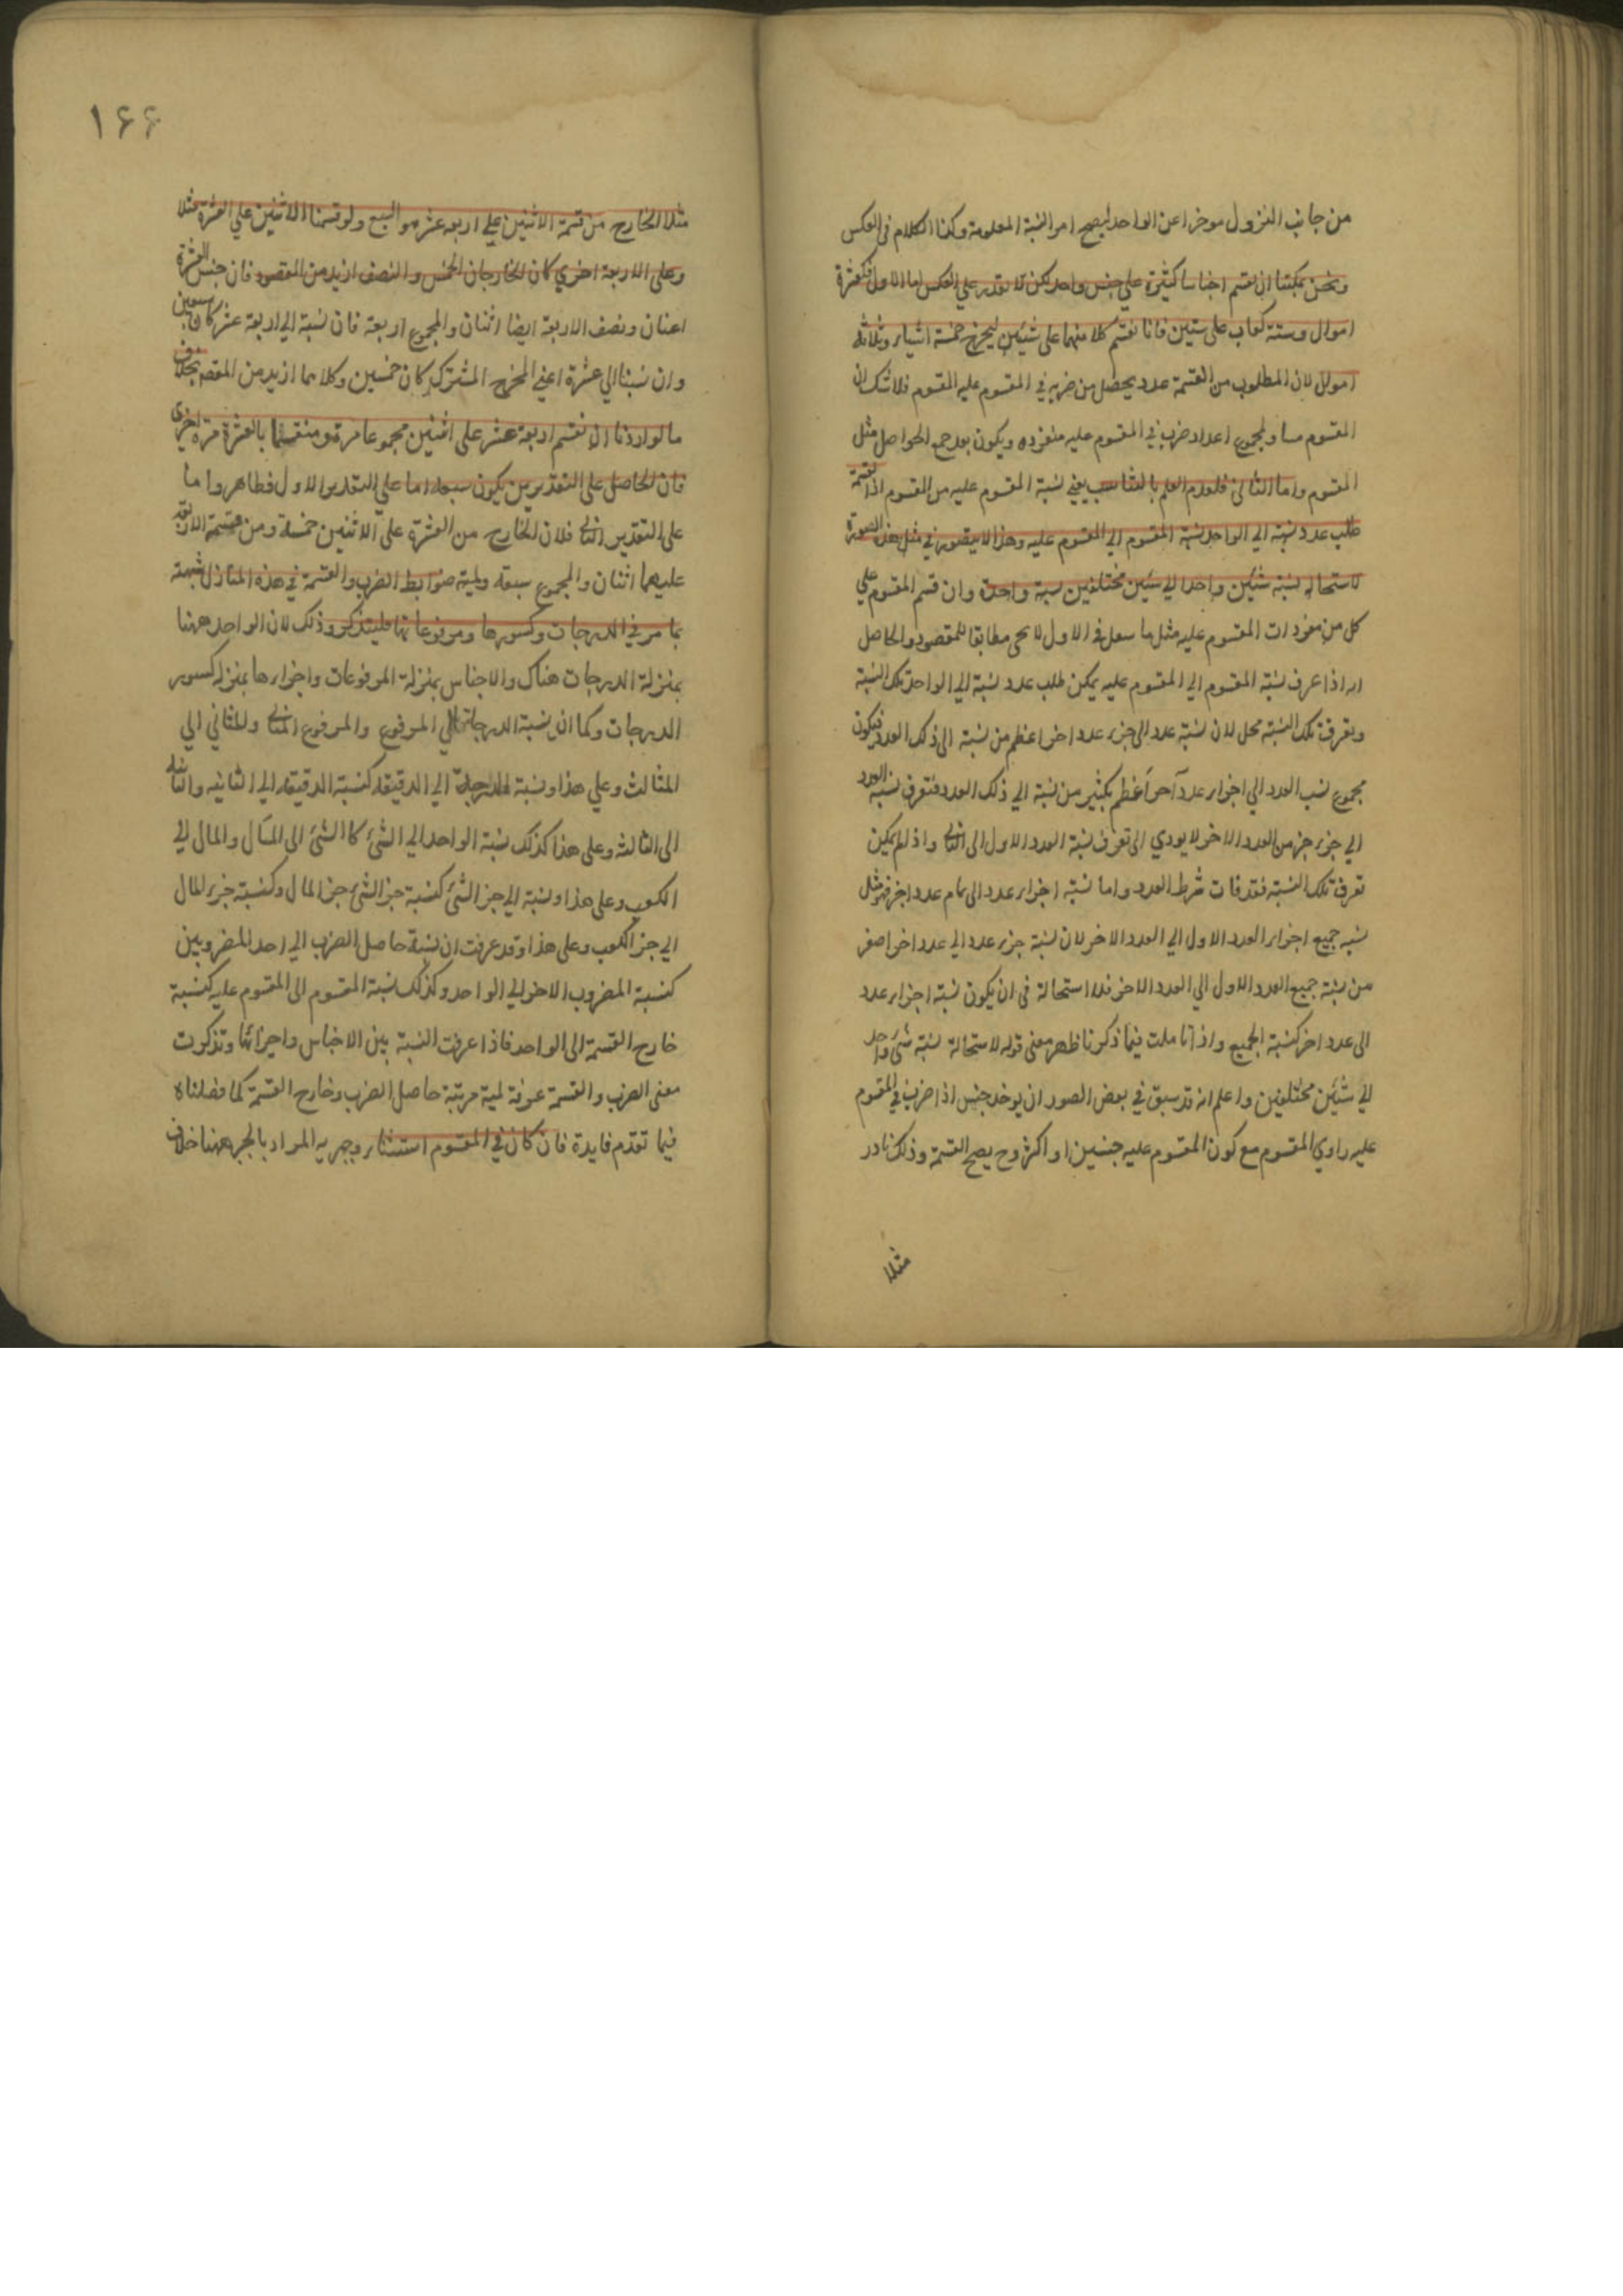 من جانب النزول موخرا عن الواحد ليصح امر النسبة المعلومة وكذا الكلام فى العكس
ونحن يمكننا ان نقسم اجناسا كثيرة علي جنس واحد لكن لا نقدر علي العكس اما الاول فكعشرة
اموال وستة كعاب على شيئين فانا نقسم كلا منهما على شيئين ليخرج خمسة اشياء وثلاثة
اموال لان المطلوب من القسمة عدد يحصل من ضربه في المقسوم عليه المقسوم فلا شك ان
المقسوم مساو لمجموع اعداد ضرب في المقسوم عليه منفرده ويكون بعد جمع الحواصل مثل
المقسوم واما الثانى فلعدم العلم بالتناسب يعني نسبة المقسوم عليه من المقسوم اذا لقسمة
طلب عدد نسبته الي الواحد نسبة المقسوم الي المقسوم عليه وهذا لا يتصور في مثل هذه الصورة
لاستحالة نسبة شئين واحد الي شئين مختلفين نسبة واحدة وان قسم المقسوم علي
كل من مفردات المقسوم عليه مثل ما فى الاول لا مطابقا للمقصود والحاصل
انه اذا عرف نسبة المقسوم الي المقسوم عليه يمكن طلب عدد نسبة الي الواحد تلك النسبة
وتعرف تلك النسبة محل لان نسبة عدد الى جزء عدد اخر اعظم من نسبة الى ذلك العدد فيكون
مجموع نسب العدد الي اجزاء عدد آخر اعظم بكثير من نسبة الي ذلك العدد فتعرف نسبة العدد
الي جزء جزء من العدد الاخر لا يودي الى تعرف نسبة العدد الاول الى الثانى واذ لم يمكن
تعرف تلك النسبة فقد فات شرط العدد واما نسبة اجزاء عدد الى تمام عدد اخر فهو مثل
نسبه جميع اجزاء العدد الاول الي العدد الاخر لان نسبة جزء عدد الي عدد اخر اصغر
من نسبة جميع العدد الاول الي العدد الاخر فلا استحالة فى ان يكون نسبة اجزاء عدد
الى عدد اخر كنسبة الجميع واذ تاملت فيما ذكرنا ظهر معنى قوله لاستحالة نسبة شئ واحد
الي شئين مختلفين واعلم انه قد سبق في بعض الصور ان يوخد جنس اذا ضرب في المقسوم
عليه ساوي المقسوم مع كون المقسوم عليه جنسين او اكثر وح يصح القسمة وذلك نادر
مثلا
١۶۶
مثلا الخارج من قسمة الاثنين علي اربعه عشر هو السبع ولو قسمنا الاثنين علي العشرة مثلا
وعلى الاربعة اخري كان الخارجان الخمس والنصف ازيد من المقصود فان خمس العشرة
اعنان ونصف الاربعة ايضا اثنان والمجموع اربعة فان نسبة الي اربعة عشر كان سبعين
وان نسبنا الي عشرة اعني المخرج المشترك كان خمسين وكلاهما ازيد من المقصد بخلاف
ما لو اردنا ان نقسم اربعة عشر على اثنين مجموعا مرة ومنقسما بالعشرة مرة اخرى
فان الحاصل على التقديرين يكون سبعه اما علي التقدير الاول فظاهر واما
على التقدير الثانى فلان الخارج من العشرة على الاثنين خمسة ومن قسمة الاربعة
عليهما اثنان والمجموع سبعه ولمية ضوابط الضرب والقسمة في هذه المنازل شبهة
بما مر في الدرجات وكسورها ومرفوعاتها فليتذكر وذلك لان الواحد ههنا
بمنزلة الدرجات هناك والاجناس بمنزلة المرفوعات واجزاءها بمنزله كسور
الدرجات وكما ان نسبة الدرجات الي المرفوع والمرفوع المثانى والمثاني الي
المثالث وعلي هذا ونسبة الدرجة الي الدقيقة كنسبة الدقيقه الي الثانيه والثانيه
الى الثالثه وعلى هذا كذلك نسبة الواحد الي الشئ كالشئ الى المال والمال الي
الكعب وعلى هذا ونسبة الي جز الشئ كنسبة جز الشئ جز المال وكنسبة جزء المال
الي جز الكعب وعلى هذا وقد عرفت ان نسبة حاصل الضرب الي احد المضروبين
كنسبة المضروب الاخر الي الواحد وكذلك نسبة المقسوم الى المقسوم عليه كنسبة
خارج القسمة الى الواحد فاذا عرفت النسبة بين الاجناس واجزائها وتذكرت
معنى الضرب والقسمة عرفة لمية مرتبة حاصل الضرب وخارج القسمة كما فصلناه
فيما تقدم فايدة فان كان في المقسوم استثناء وجبر به المراد بالجبر ههنا خلاف